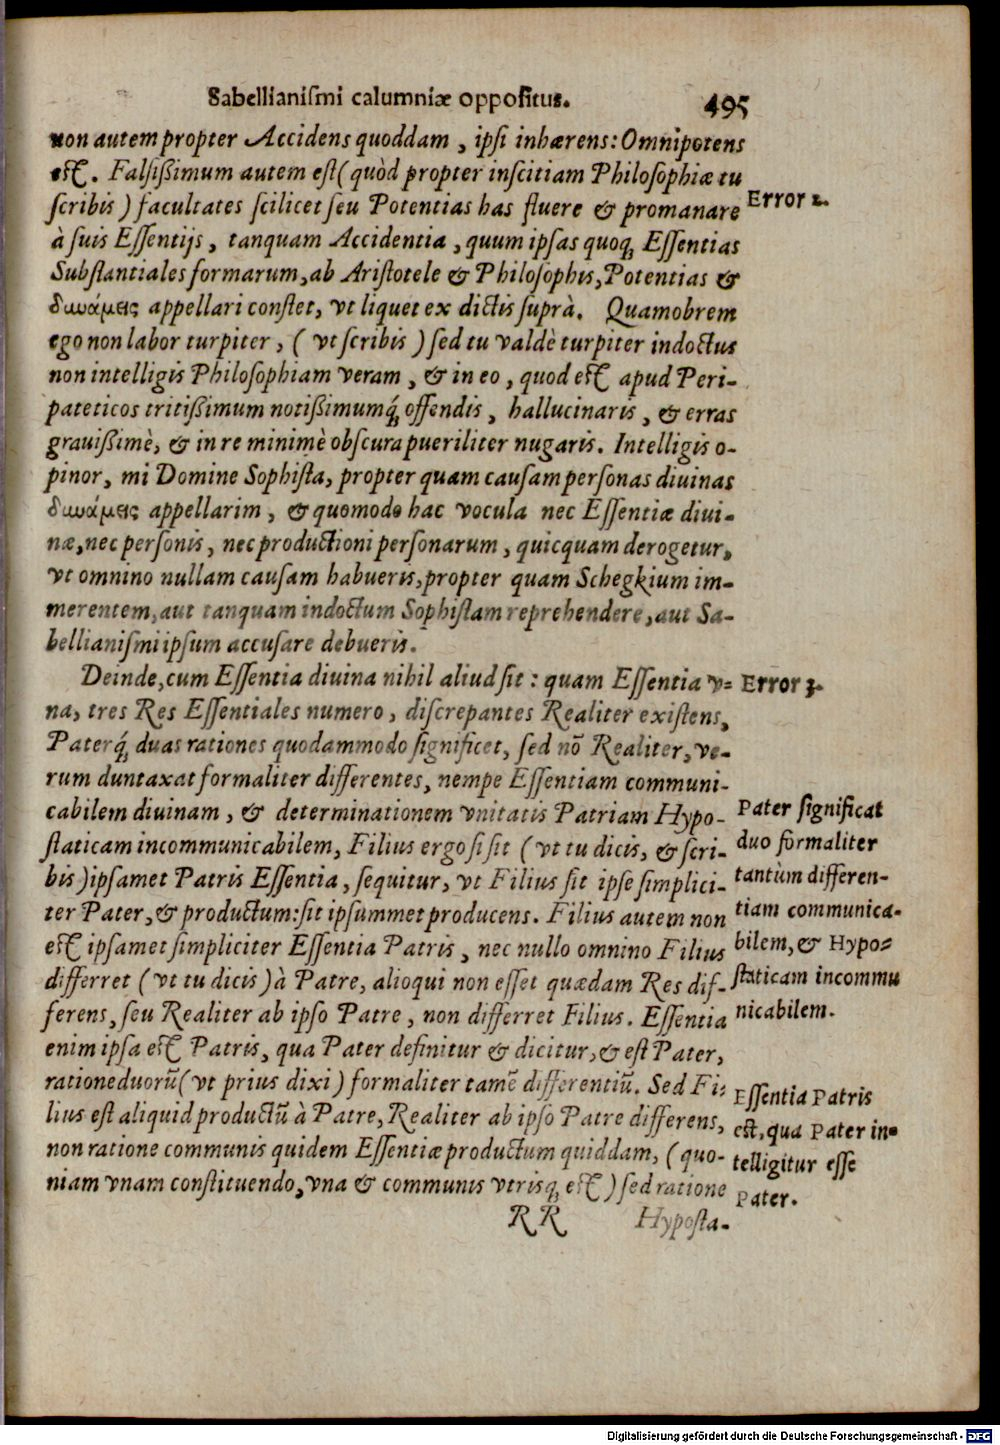 Sabellianiſmi calumniæ oppoſitus. 495
non autem propter Accidens quoddam, ipſi inhærens: Omnipotens
eſt. Falſißimum autem eſt (quòd propter inſcitiam Philoſophiæ tu
ſcribis) facultates ſcilicet ſeu Potentias has fluere & promanare
Error 2.
à ſuis Eſſentijs, tanquam Accidentia, quum ipſas quoq; Eſſentias
Subſtantiales formarum, ab Ariſtotele & Philoſophis, Potentias &
δυνάμεις appellari conſtet, vt liquet ex dictis ſuprà. Quamobrem
ego non labor turpiter, (vt ſcribis) ſed tu valdè turpiter indoctus
non intelligis Philoſophiam veram, & in eo, quod eſt apud Peri-
pateticos tritißimum notißimumq́; offendis, hallucinaris, & erras
grauißimè, & in re minimè obſcura pueriliter nugaris. Intelligis o-
pinor, mi Domine Sophiſta, propter quam cauſam perſonas diuinas
δυνάμεις appellarim, & quomodo hac vocula nec Eſſentiæ diui-
næ, nec perſonis, nec productioni perſonarum, quicquam derogetur,
vt omnino nullam cauſam habueris, propter quam Schegkium im-
merentem, aut tanquam indoctum Sophiſtam reprehendere, aut Sa-
bellianiſmi ipſum accuſare debueris.
Deinde, cum Eſſentia diuina nihil aliud ſit: quam Eſſentia v-
Error 3.
na, tres Res Eſſentiales numero, diſcrepantes Realiter exiſtens,
Paterq́; duas rationes quodammodo ſignificet, ſed nō Realiter, ve-
rum duntaxat formaliter differentes, nempe Eſſentiam communi-
cabilem diuinam, & determinationem vnitatis Patriam Hypo-
ſtaticam incommunicabilem, Filius ergo ſi ſit (vt tu dicis, & ſcri-
bis) ipſamet Patris Eſſentia, ſequitur, vt Filius ſit ipſe ſimplici-
ter Pater, & productum: ſit ipſummet producens. Filius autem non
eſt ipſamet ſimpliciter Eſſentia Patris, nec nullo omnino Filius
differret (vt tu dicis) à Patre, alioqui non eſſet quædam Res dif-
ferens, ſeu Realiter ab ipſo Patre, non differret Filius. Eſſentia
Pater ſignificat
duo formaliter
tantùm differen-
tiam communica-
bilem, & Hypo-
ſtaticam incommu
nicabilem.
enim ipſa eſt Patris, qua Pater definitur & dicitur, & eſt Pater,
ratione duorū (vt prius dixi) formaliter tamē differentiū. Sed Fi-
lius eſt aliquid productū à Patre, Realiter ab ipſo Patre differens,
non ratione communis quidem Eſſentiæ productum quiddam, (quo-
niam vnam conſtituendo, vna & communis vtrisq; eſt) ſed ratione
Eſſentia Patris
eſt, qua Pater in-
telligitur eſſe
Pater.
RR Hypoſta-
Digitalisierung gefördert durch die Deutsche Forschungsgemeinschaft - DFG